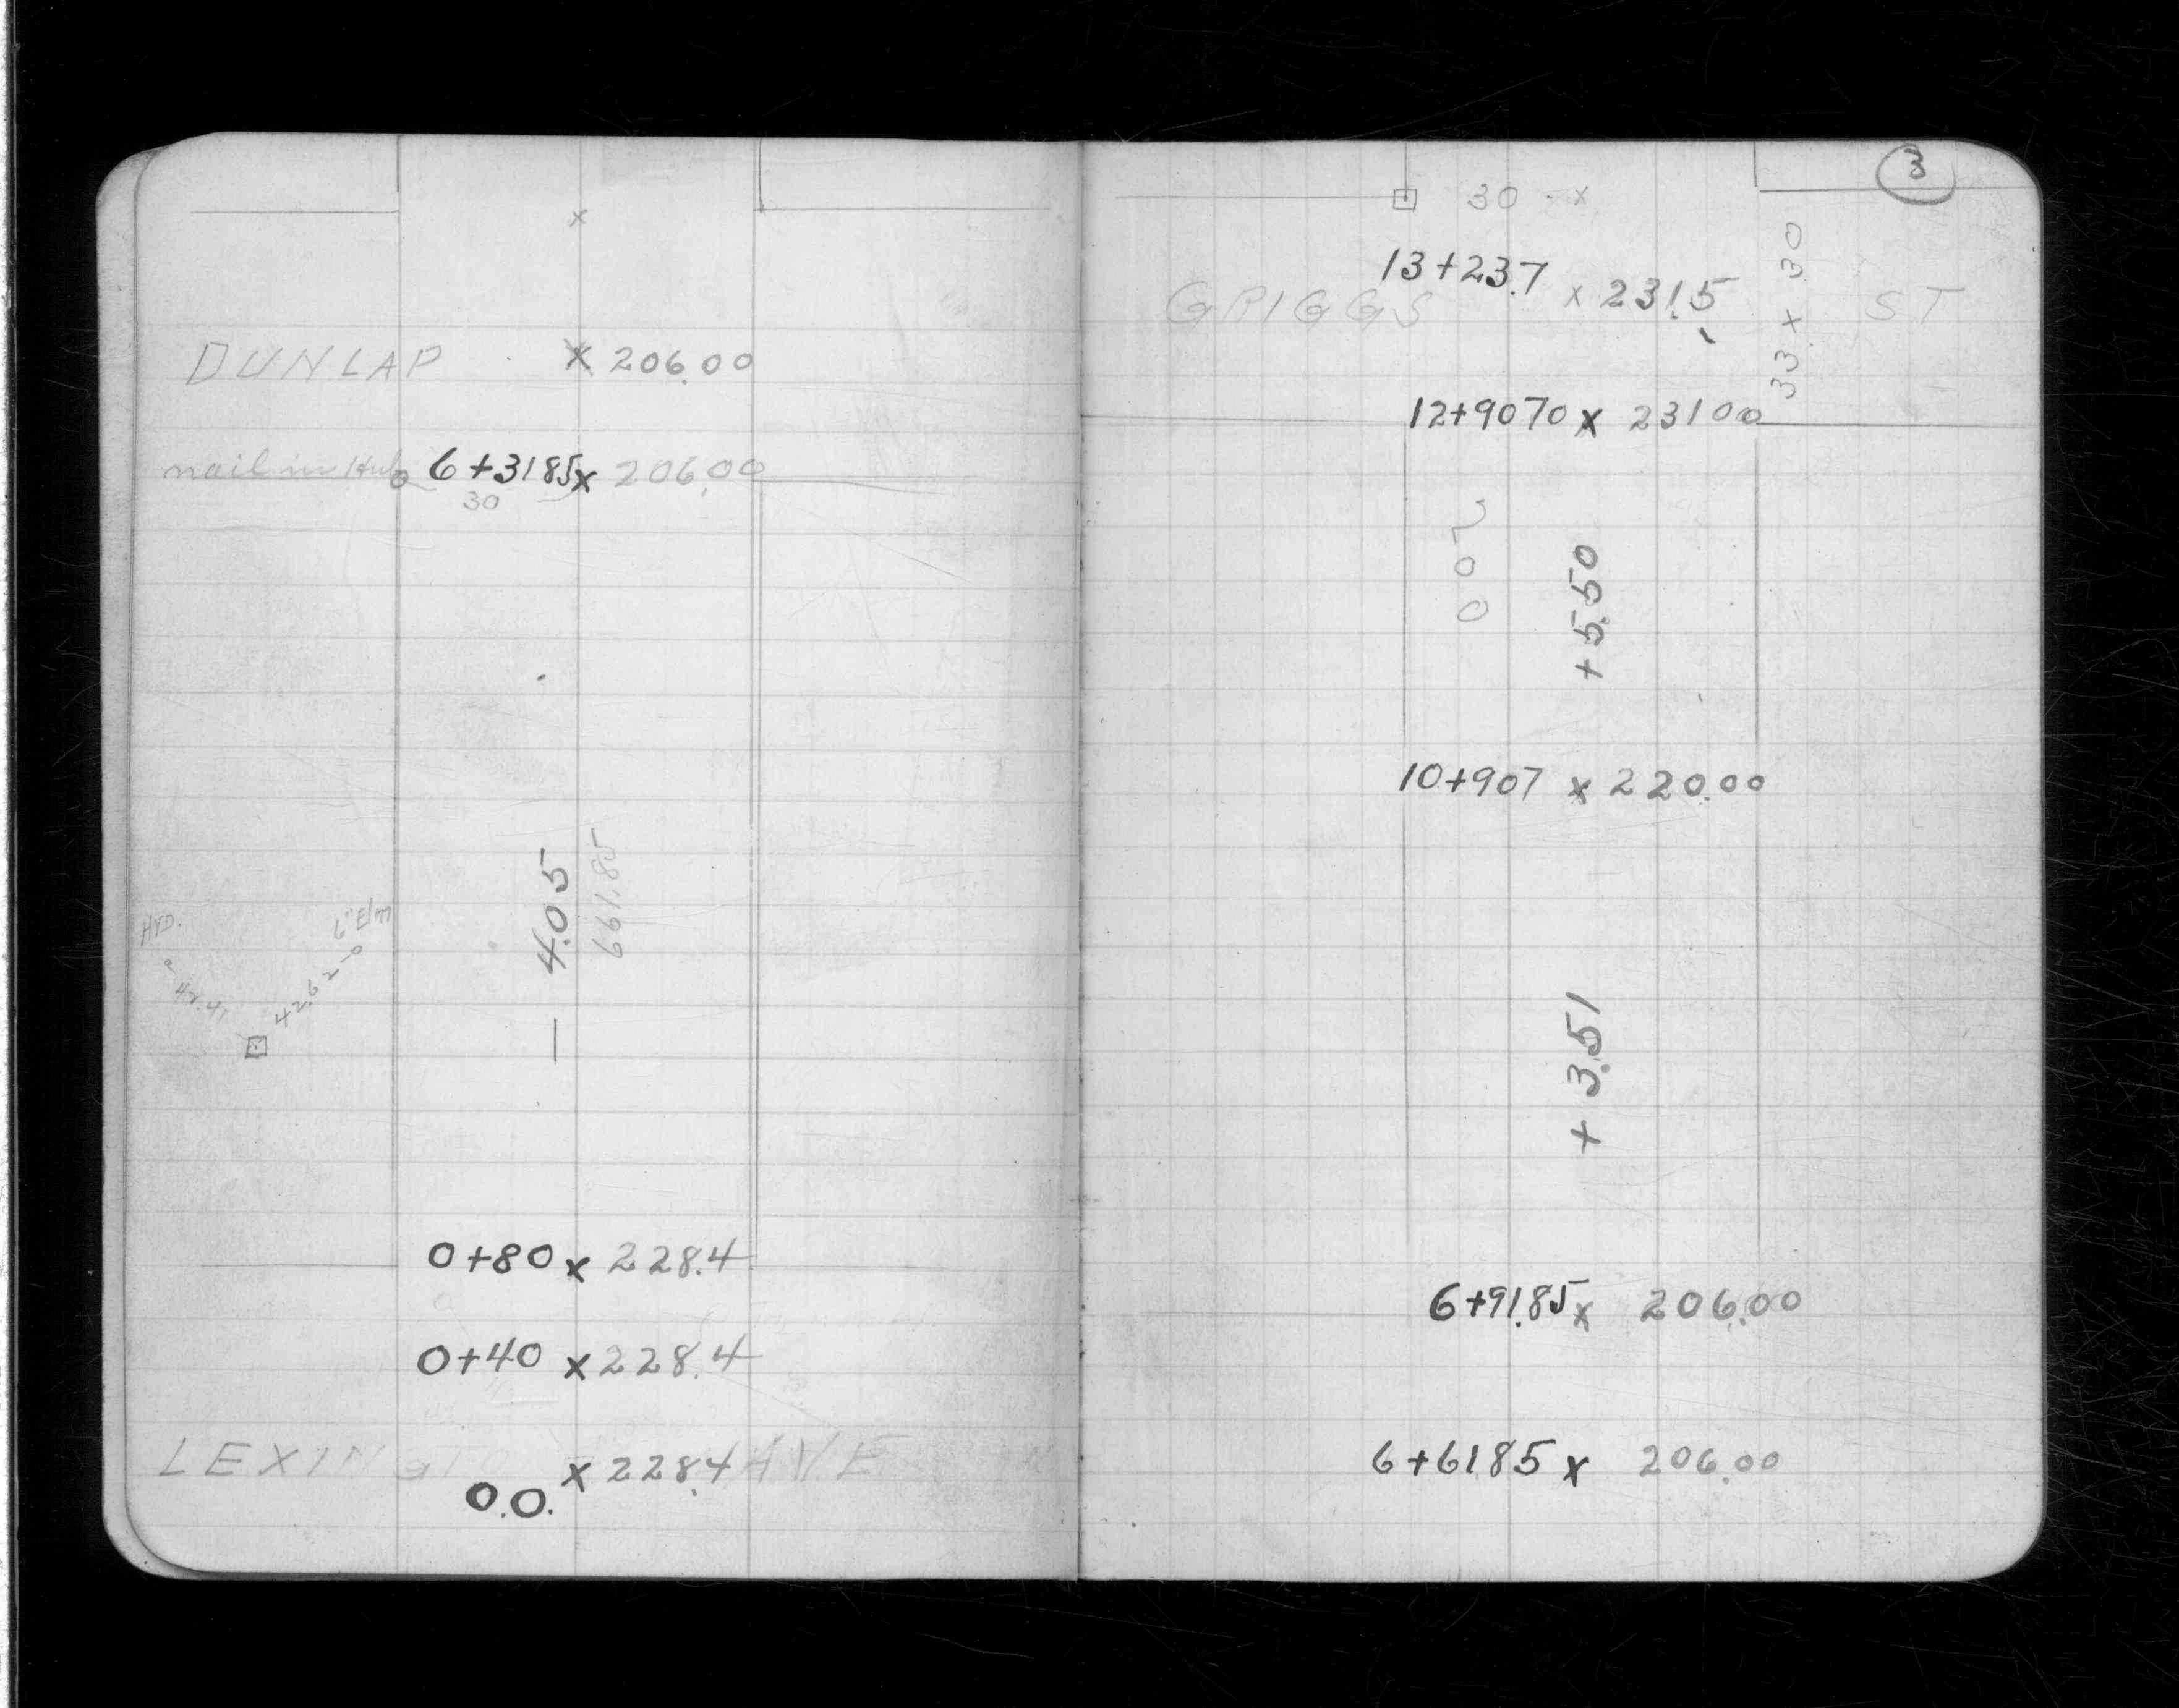 DUNLAP × 206.00
nail in Hub 6+31.85 × 206.00
30
- 4.05
661.85
HYD.
6" Elm
42.41
42.62
0+80 × 228.4
0+40 × 228.4
LEXINGTON AVE
× 228.4
0.0.
3
30 ×
13+23.7 × 231.5
GRIGGS ST
33 × 30
12+9070 × 23100
200
+5.50
10+907 × 220.00
+3.51
6+91.85 × 206.00
6+6185 × 206.00